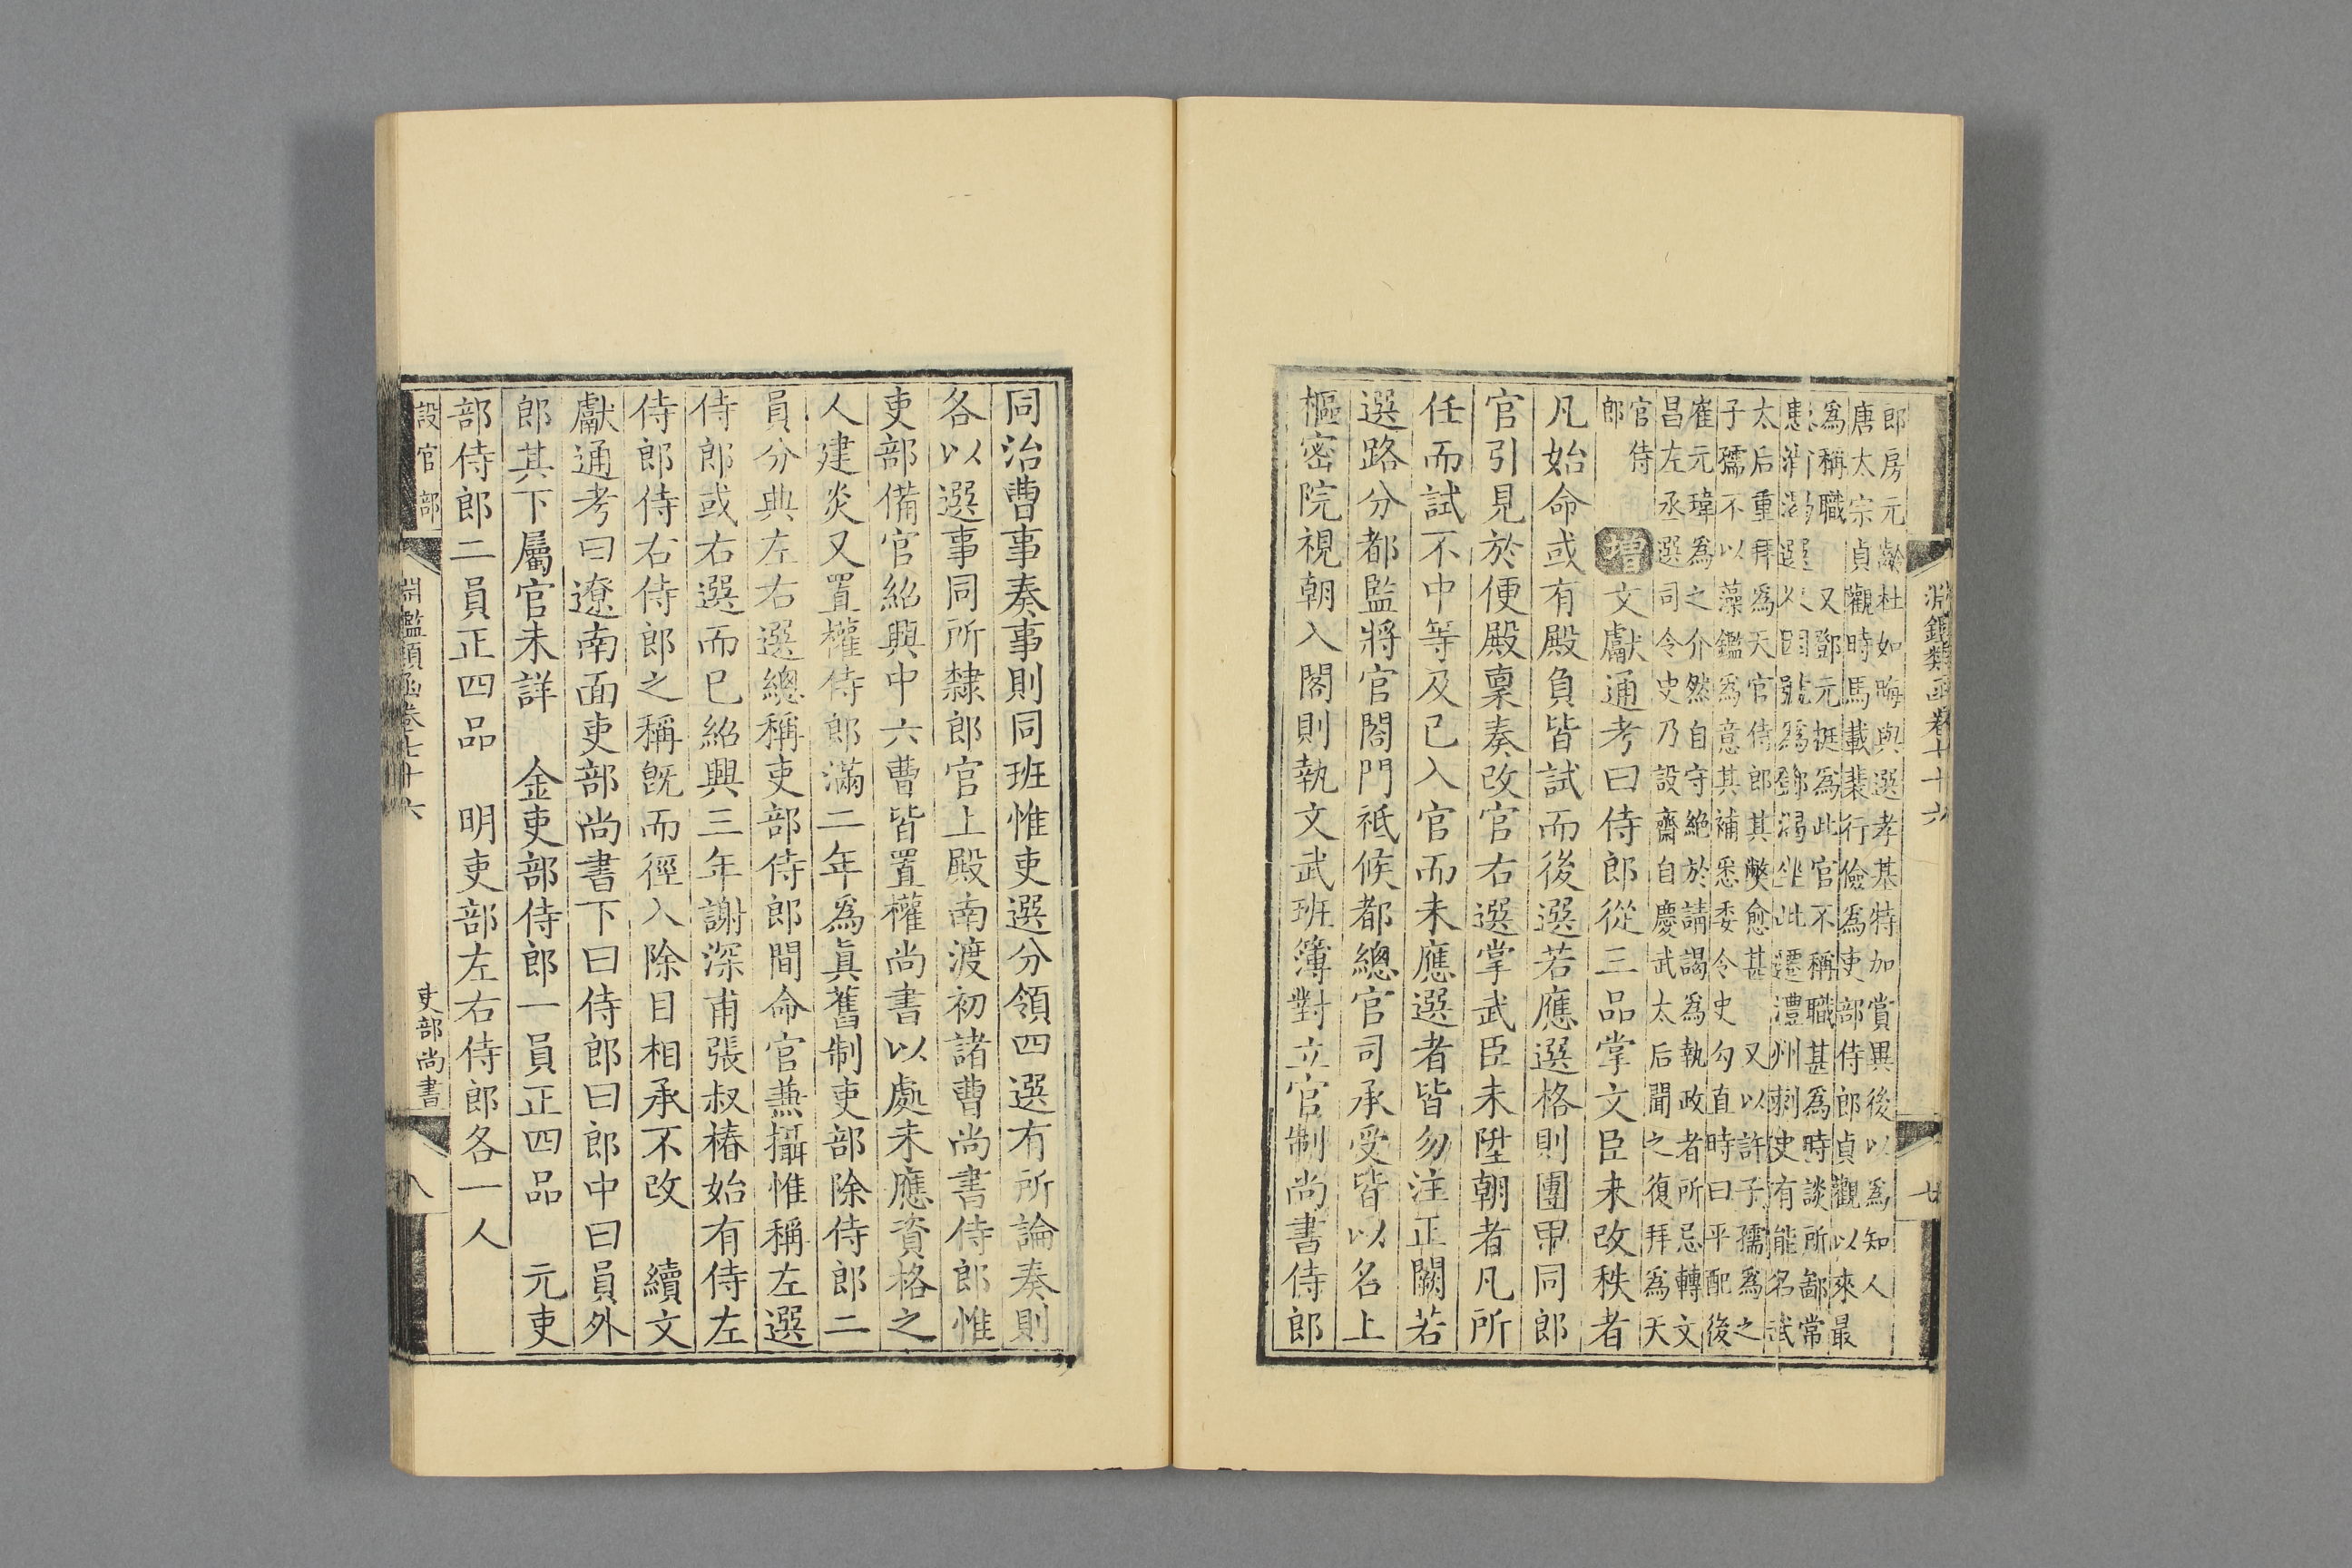 郎房元齡杜如晦與選孝基特加賞異後以爲知人
唐太宗貞觀時馬載裴行儉爲吏部侍郎貞觀以來最
爲稱職 又鄧元挺爲此官不稱職甚爲時談所鄙常
患消渴選人因號爲鄧渴坐此遷澧州刺史有能名武
太后重拜爲天官侍郎其弊愈甚 又以許子孺爲之
子孺不以藻鑑爲意其補悉委令史勾直時曰平配後
崔元瑋爲之介然自守絶於請謁爲執政者所忌轉文
昌左丞選司令史乃設齋自慶武太后聞之復拜爲天
官侍
郎
增文獻通考曰侍郎從三品掌文臣未改秩者
凡始命或有殿負皆試而後選若應選格則團甲同郎
官引見於便殿稟奏改官右選掌武臣未陞朝者凡所
任而試不中等及已入官而未應選者皆勿注正闕若
選路分都監將官閤門祗候都總官司承受皆以名上
樞密院視朝入閤則執文武班簿對立官制尚書侍郎
淵鑑類函卷七十六
同治曹事奏事則同班惟吏選分領四選有所論奏則
各以選事同所隸郎官上殿南渡初諸曹尚書侍郎惟
吏部備官紹興中六曹皆置權尚書以處未應資格之
人建炎又置權侍郎滿二年爲眞舊制吏部除侍郎二
員分典左右選總稱吏部侍郎間命官兼攝惟稱左選
侍郎或右選而已紹興三年謝深甫張叔椿始有侍左
侍郎侍右侍郎之稱旣而徑入除目相承不改 續文
獻通考曰遼南面吏部尚書下曰侍郎曰郎中曰員外
郎其下屬官未詳 金吏部侍郎一員正四品 元吏
部侍郎二員正四品 明吏部左右侍郎各一人
設官部
淵鑑類函卷七十六
吏部尚書
八